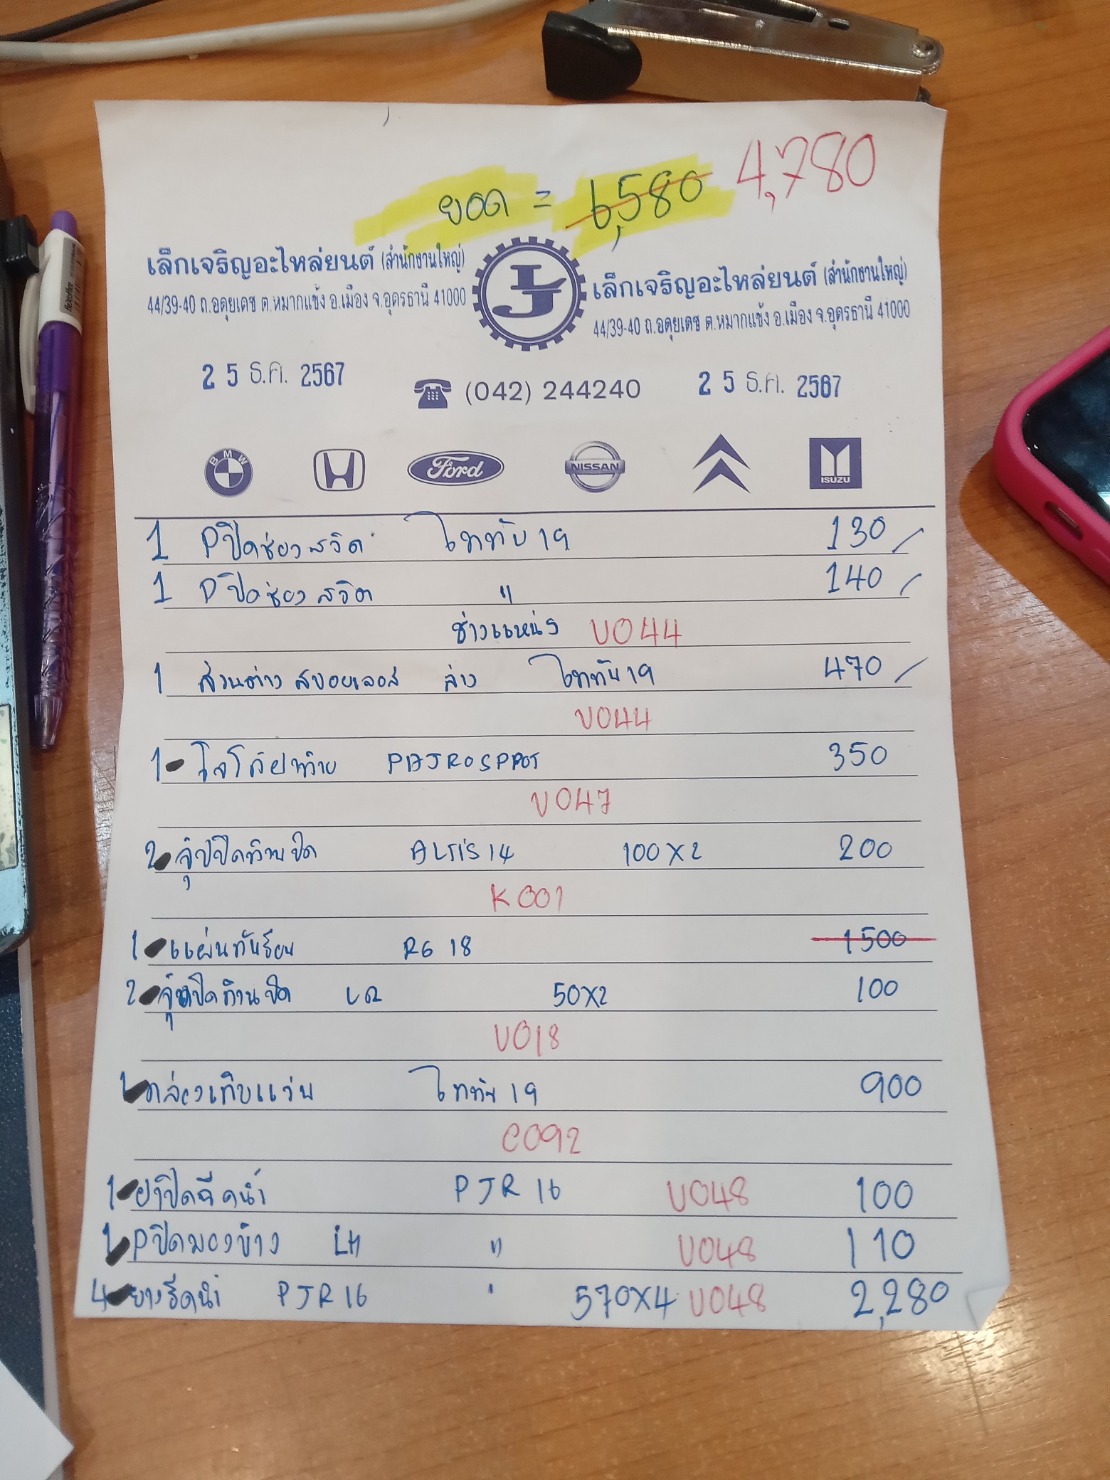 ยอด = 6,580 4,780
เล็กเจริญอะไหล่ยนต์ (สำนักงานใหญ่)
44/39-40 ถ.อดุยเดช ต.หมากแข้ง อ.เมือง จ.อุดรธานี 41000
LJ
เล็กเจริญอะไหล่ยนต์ (สำนักงานใหญ่)
44/39-40 ถ.อดุยเดช ต.หมากแข้ง อ.เมือง จ.อุดรธานี 41000
25 ธ.ค. 2567
(042) 244240
25 ธ.ค. 2567
BMW Ford NISSAN ISUZU
1 Pปิดช่องสวิต ไททัน19 130
1 Pปิดช่องสวิต " 140
ช่างแหน่ง U044
1 ส่วนต่างสปอยเลอร์ ล่าง ไททัน19 470
U044
1 โลโก้ฝาท้าย 350
U047
2 ALTIS14 100X2 200
K001
1 แผ่นกันร้อน RG 18 1500
2 50X2 100
U018
1 กล่องเก็บแว่น ไททัน19 900
C092
1 ฝาปิดฉีดน้ำ PJR16 U048 100
1 Pปิดมองข้าง LH " U048 110
4 ยางรีดน้ำ PJR16 " 570X4 U048 2,280